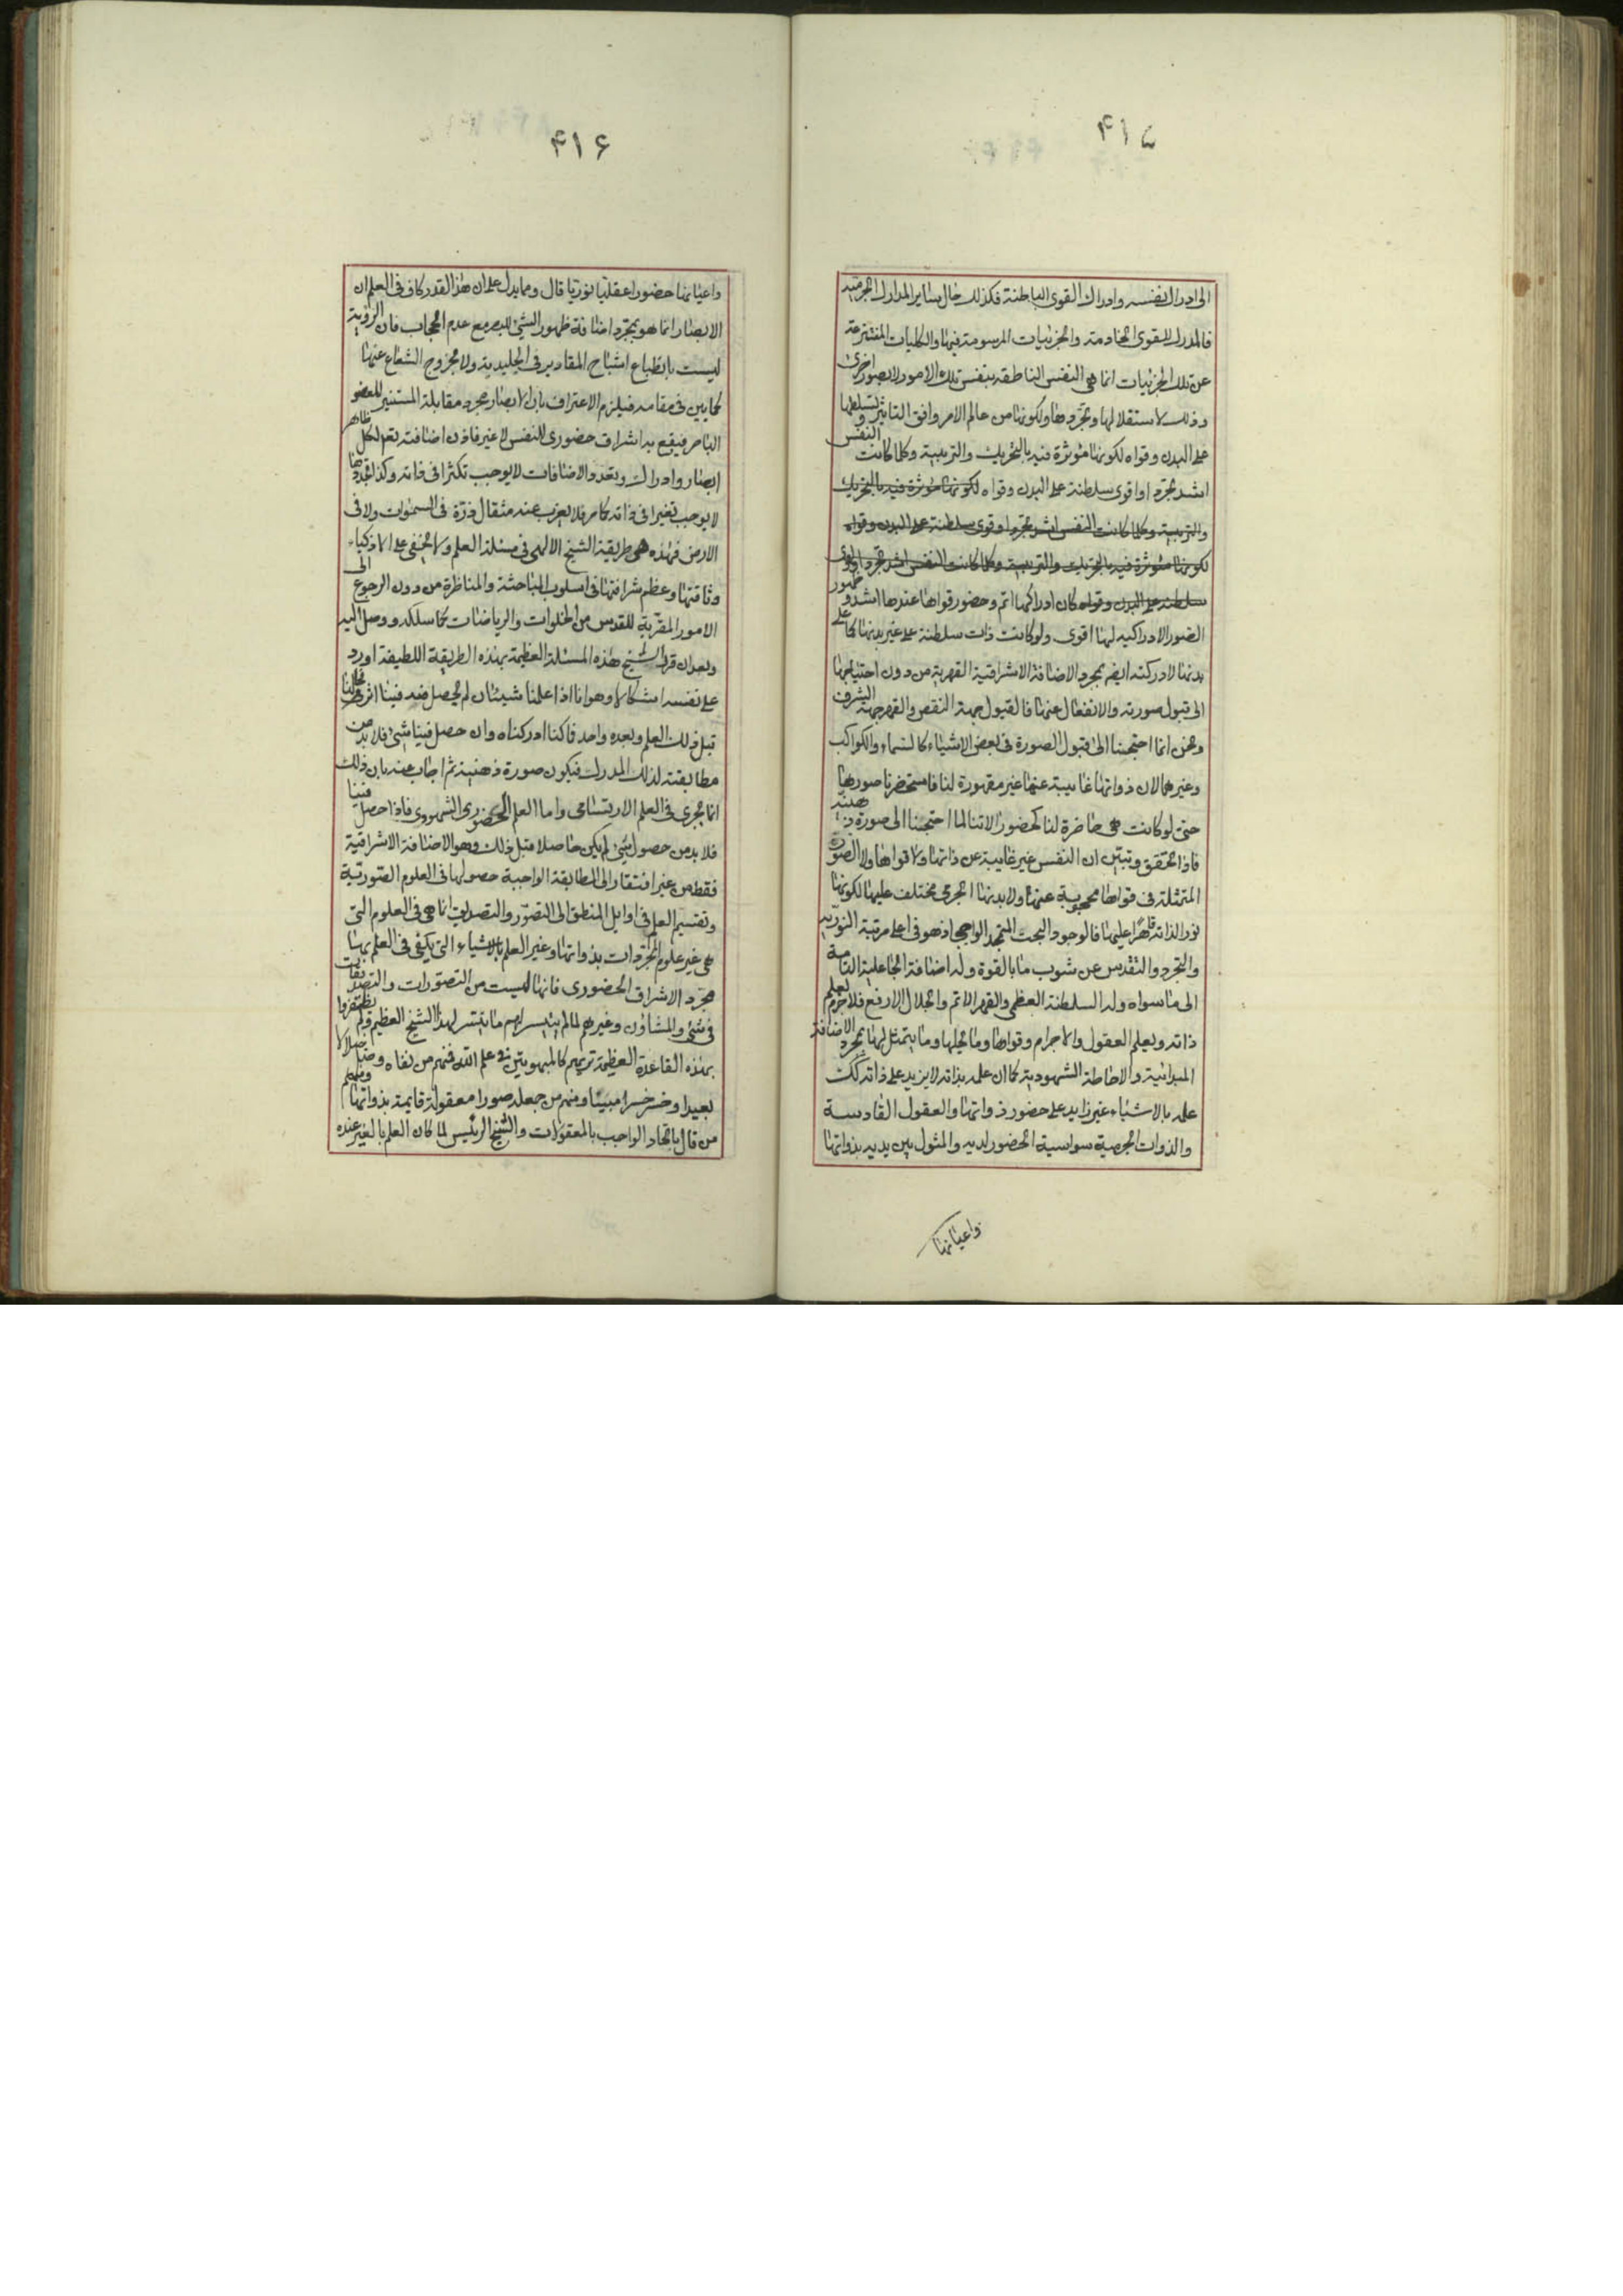 ۴۱۵
الی ادراك نفسه وادراك القوی الباطنة فكذلك حال سایر المدارك الجزئیه
فالمدرك للقوی الخادمة والجزئیات المرسومة فیها والكلیات المنتزعة
عن تلك الجزئیات انما هی النفس الناطقه بنفس تلك الامور لا بصور اخری
وذلك لاستقلالها وتجردها ولكونها من عالم الامر وافق التاثیر وتسلطها
علی البدن وقواه لكونها مؤثرة فیه بالتحریك والتربیة وكلما كانت النفس
اشد تجردا واقوی سلطنة علی البدن وقواه لكونها مؤثرة فیه بالتحریك
والتربیة وكلما كانت النفس اشد تجردا وقوی سلطنة علی البدن وقواه
لكونها مؤثرة فیه بالتحریك والتربیة وكلما كانت النفس اشد تجردا واقوی
سلطنة علی البدن وقواه كان ادراكها اتم وحضور قواها عندها اشد وظهور
الصور الادراكیه لها اقوی ولو كانت ذات سلطنة علی غیر بدنها كما علی
بدنها لادركته ایضا بمجرد الاضافة الاشراقیة القهریة من دون احتیاجها
الی قبول صورته والانفعال عنها فالقبول جهة النقص والقهر جهة الشرف
ونحن انما احتجنا الی قبول الصورة فی بعض الاشیاء كالسماء والكواكب
وغیرهما لان ذواتها غایبة عنها غیر مقهورة لنا فاستحضرنا صورها
حتی لو كانت هی حاضرة لنا كحضور الاتنا لما احتجنا الی صورة ذهنیة
فاذا تحقق وتبین ان النفس غیر غایبة عن ذاتها ولا قواها ولا الصورة
المتمثلة فی قواها محجوبة عنها ولا بدنها الجرمی مختلف علیها لكونها
نور الذاته قاهرا علیها فالوجود البحت المتمجد الواجبی اذ هو فی اعلی مرتبة النوریه
والتجرد والتقدس عن شوب ما بالقوة وله اضافة الجاعلیة التامة
الی ما سواه وله السلطنة العظمی والقهر الاتم والجلال الارفع فلا جرم یعلم
ذاته ویعلم العقول والاجرام وقواها وما یحلها وما یتمثل لها بمجرد الاضافة
المبدائیة والاحاطة الشهودیة كما ان علمه بذاته لا یزید علی ذاته كك
علمه بالاشیاء غیر زاید علی حضور ذواتها والعقول القادسة
والذوات الجرمیة سواسیة الحضور لدیه والمثول بین یدیه بذواتها
واعیانها
۴۱۶
واعیانها حضورا عقلیا نوریا قال ومما یدل علی ان هذا القدر كاف فی العلم ان
الابصار انما هو بمجرد اضافة ظهور الشئ للبصر مع عدم الحجاب فان الرؤیة
لیست بانطباع اشباح المقادیر فی الجلیدیة ولا بخروج الشعاع عنها
كما بین فی مقامه فیلزم الاعتراف بان الابصار مجرد مقابلة المستنیر للعضو
الباصر فیقع به اشراق حضوری للنفس لا غیر فاذن اضافته تعم لكل ظاهر
ابصار وادراك وتعدد الاضافات لا یوجب تكثرا فی ذاته وكذا تجددها
لا یوجب تغیرا فی ذاته كما مر فلا یعزب عنه مثقال ذرة فی السموات ولا فی
الارض فهذه هی طریقة الشیخ الالهی فی مسئلة العلم ولا یخفی علی الاذكیاء
وثاقتها وعظم شرافتها فی اسلوب المباحثة والمناظرة من دون الرجوع الی
الامور المقربة للقدس من الخلوات والریاضات كما سلكه ووصل الیه
وبعد ان قرر الشیخ هذه المسئلة العظیمة بهذه الطریقة اللطیفة اورد
علی نفسه اشكالا وهو انا اذا علمنا شیئا ان لم یحصل منه فینا اثر فحالنا
قبل ذلك العلم وبعده واحد فاكنا ادركناه وان حصل فینا شئ فلا بد من
مطابقته لذلك المدرك فیكون صورة ذهنیة ثم اجاب عنه بان ذلك
انما یجری فی العلم الارتسامی واما العلم الحضوری الشهودی فاذا حصل فینا
فلا بد من حصول شئ لم یكن حاصلا قبل ذلك وهو الاضافة الاشراقیة
فقط من غیر افتقار الی المطابقة الواجبة حصولها فی العلوم الصوریة
وتقسیم العلم فی اوایل المنطق الی التصور والتصدیق انما هی فی العلوم التی
هی غیر علوم المجردات بذواتها وغیر العلم بالاشیاء التی یكفی فی العلم بها
مجرد الاشراق الحضوری فانها لیست من التصورات والتصدیقات
فی شئ والمشاؤن وغیرهم لما لم یتیسر لهم ما تیسر لهذا الشیخ العظیم ولم یظفروا
بهذه القاعدة العظیمة تریهم كالمبهوتین فی علم الله فمنهم من نفاه وضل ضلالا
بعیدا وخسر خسرا مبینا ومنهم من جعله صورا معقولة قایمة بذواتها ومنهم
من قال باتحاد الواجب بالمعقولات والشیخ الرئیس لما كان العلم بالغیر عنده